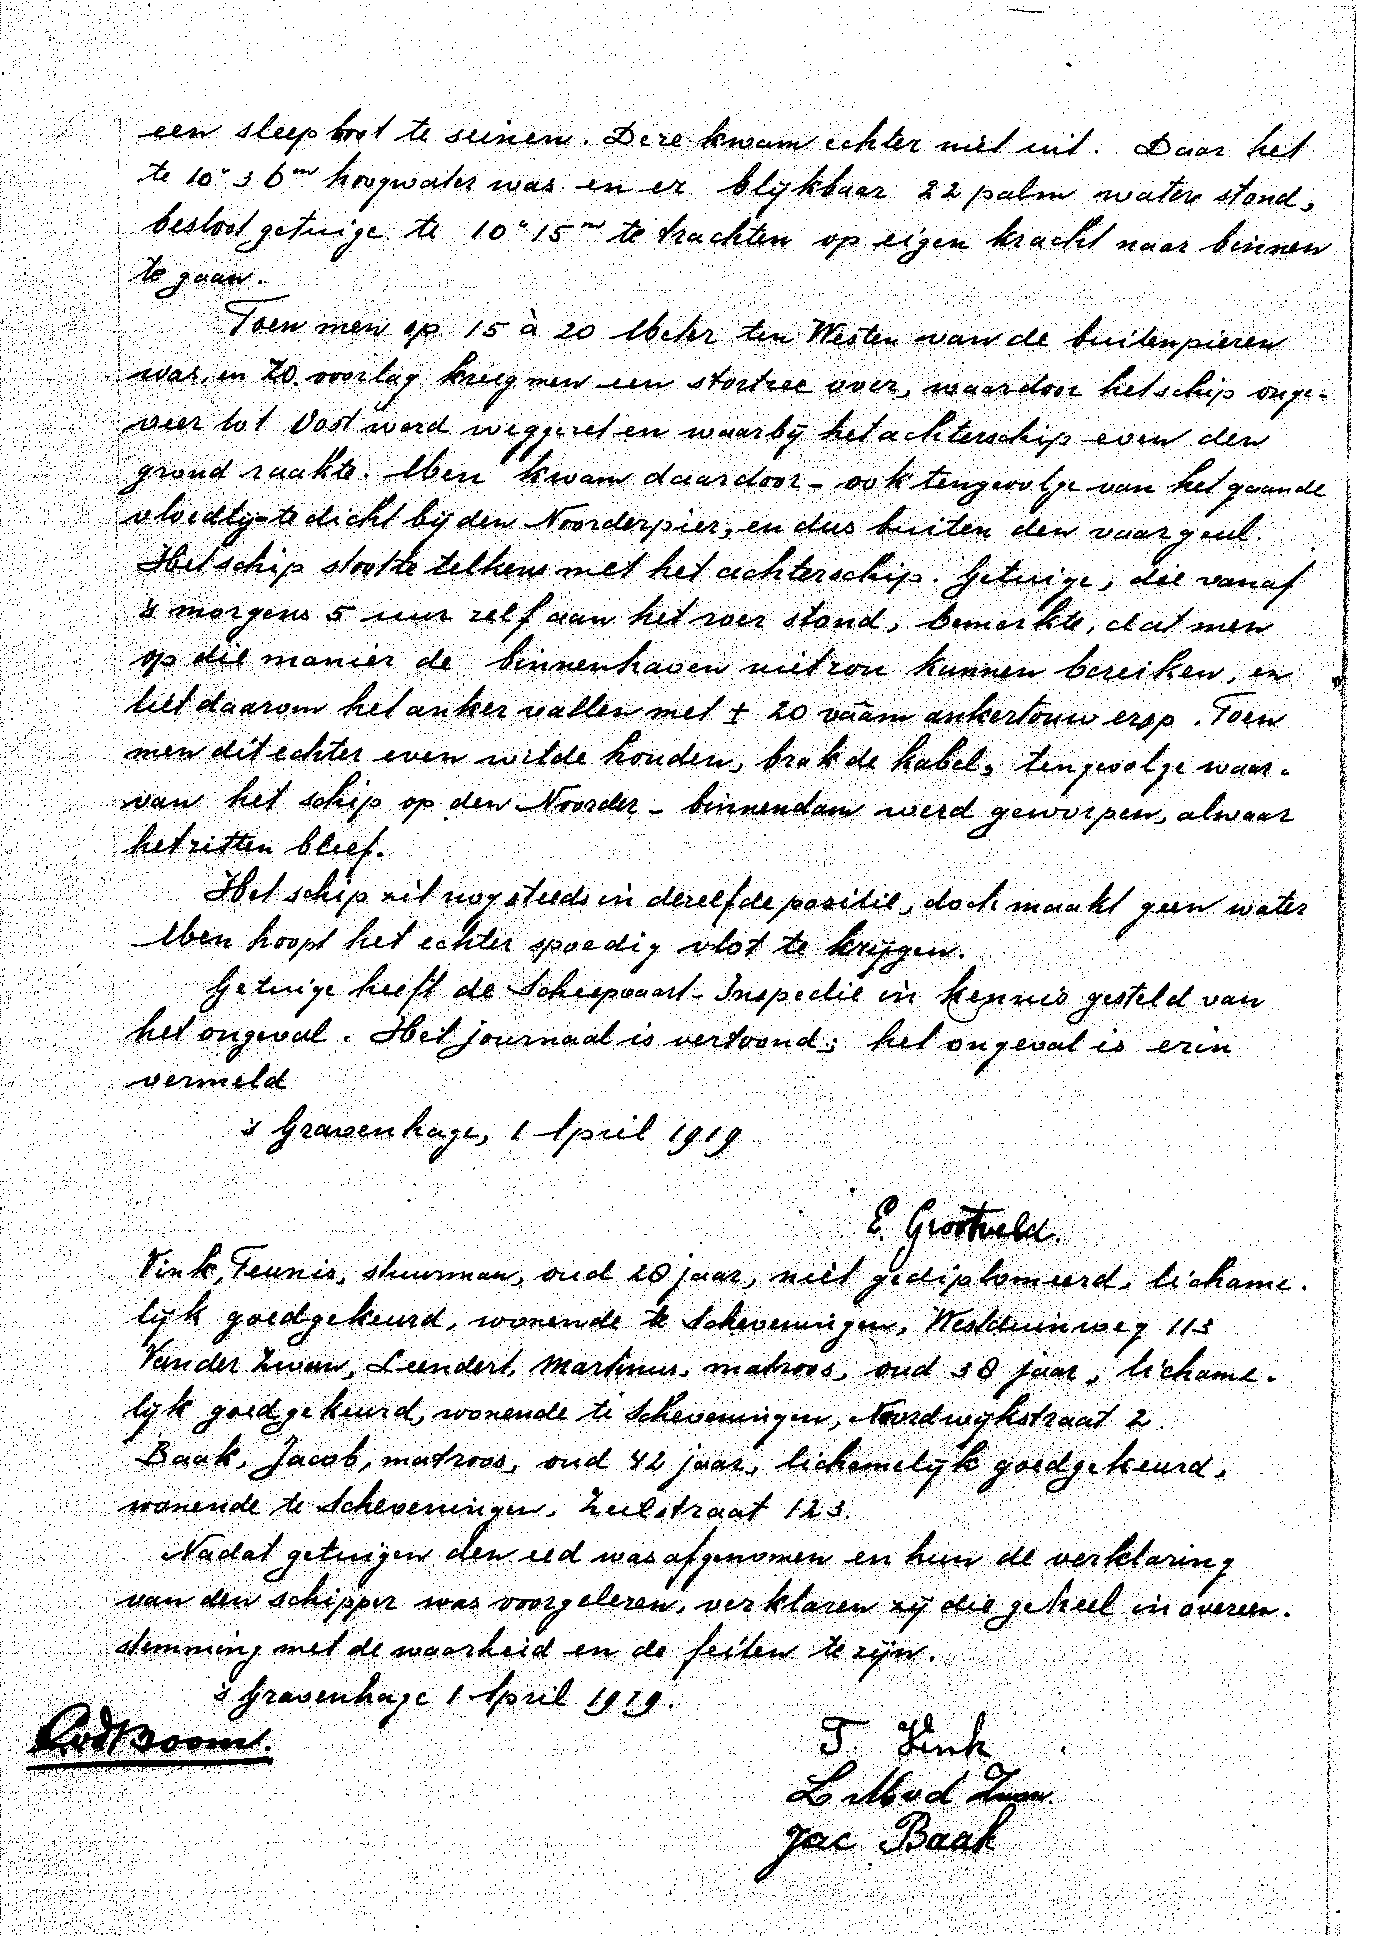 een sleepboot te seinen. Deze kwam echter niet uit. Daar het
te 10u 36m hoogwater was en er blijkbaar 22 palm water stond,
besloot getuige te 10u 15m te trachten op eigen kracht naar binnen
te gaan.
Toen men op 15 à 20 Meter ten Westen van de buitenpieren
was, en ZO. voorlag kreeg men een stortzee over, waardoor het schip onge-
veer tot Oost werd weggezet en waarbij het achterschip even den
grond raakte. Men kwam daardoor - ook tengevolge van het gaande
vloedtij - te dicht bij den Noorderpier, en dus buiten den vaargeul.
Het schip stootte telkens met het achterschip. Getuige, die vanaf
's morgens 5 uur zelf aan het roer stond, bemerkte, dat men
op die manier de binnenhaven niet zou kunnen bereiken, en
liet daarom het anker vallen met ± 20 vaam ankertouw erop. Toen
men dit echter even wilde houden, brak de kabel, tengevolge waar-
van het schip op den Noorder - binnendam werd geworpen, alwaar
het zitten bleef.
Het schip zit nog steeds in dezelfde positie, doch maakt geen water
Men hoopt het echter spoedig vlot te krijgen.
Getuige heeft de Scheepvaart-Inspectie in kennis gesteld van
het ongeval. Het journaal is vertoond; het ongeval is erin
vermeld
's Gravenhage, 1 April 1919
E. Grootveld.
Vink, Teunis, stuurman, oud 28 jaar, niet gediplomeerd, lichame-
lijk goedgekeurd, wonende te Scheveningen, Westduinweg 113
Van der Zwan, Leendert, Martinus, matroos, oud 38 jaar, lichame-
lijk goedgekeurd, wonende te Scheveningen, Noordwijkstraat 2.
Baak, Jacob, matroos, oud 42 jaar, lichamelijk goedgekeurd,
wonende te Scheveningen, Zeilstraat 123.
Nadat getuigen den eed was afgenomen en hun de verklaring
van den schipper was voorgelezen, verklaren zij die geheel in overeen-
stemming met de waarheid en de feiten te zijn.
's Gravenhage 1 April 1919.
T. Vink
L M v d Zwan
Jac Baak